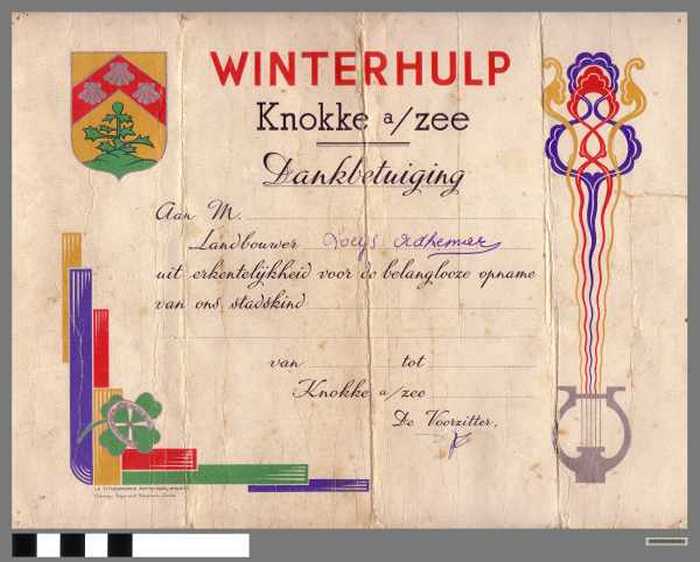 WINTERHULP
Knokke a/zee
Dankbetuiging
Aan M.
Landbouwer Loeys Adhemar
uit erkentelijkheid voor de belanglooze opname
van ons stadskind
van tot
Knokke a/zee
De Voorzitter,